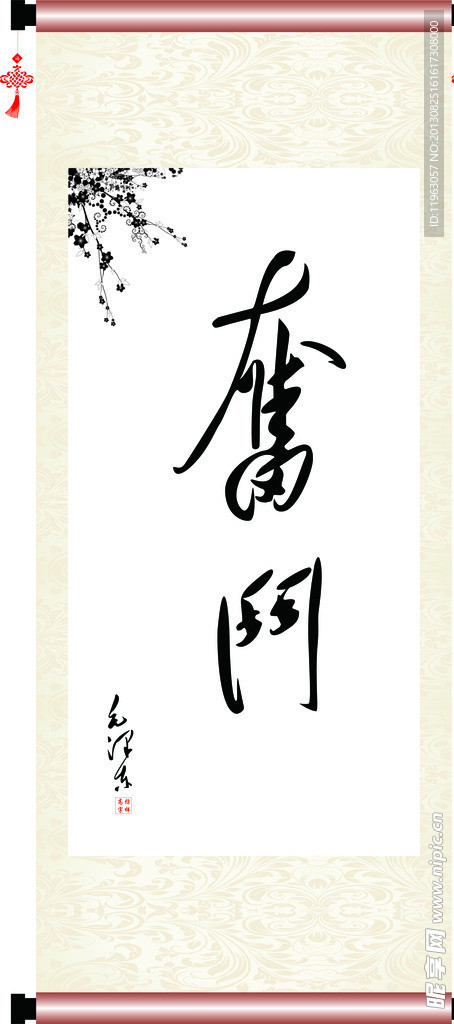 奮
鬥
毛泽东
ID:11963057 NO:20130825161617308000
昵享网 www.nipic.cn